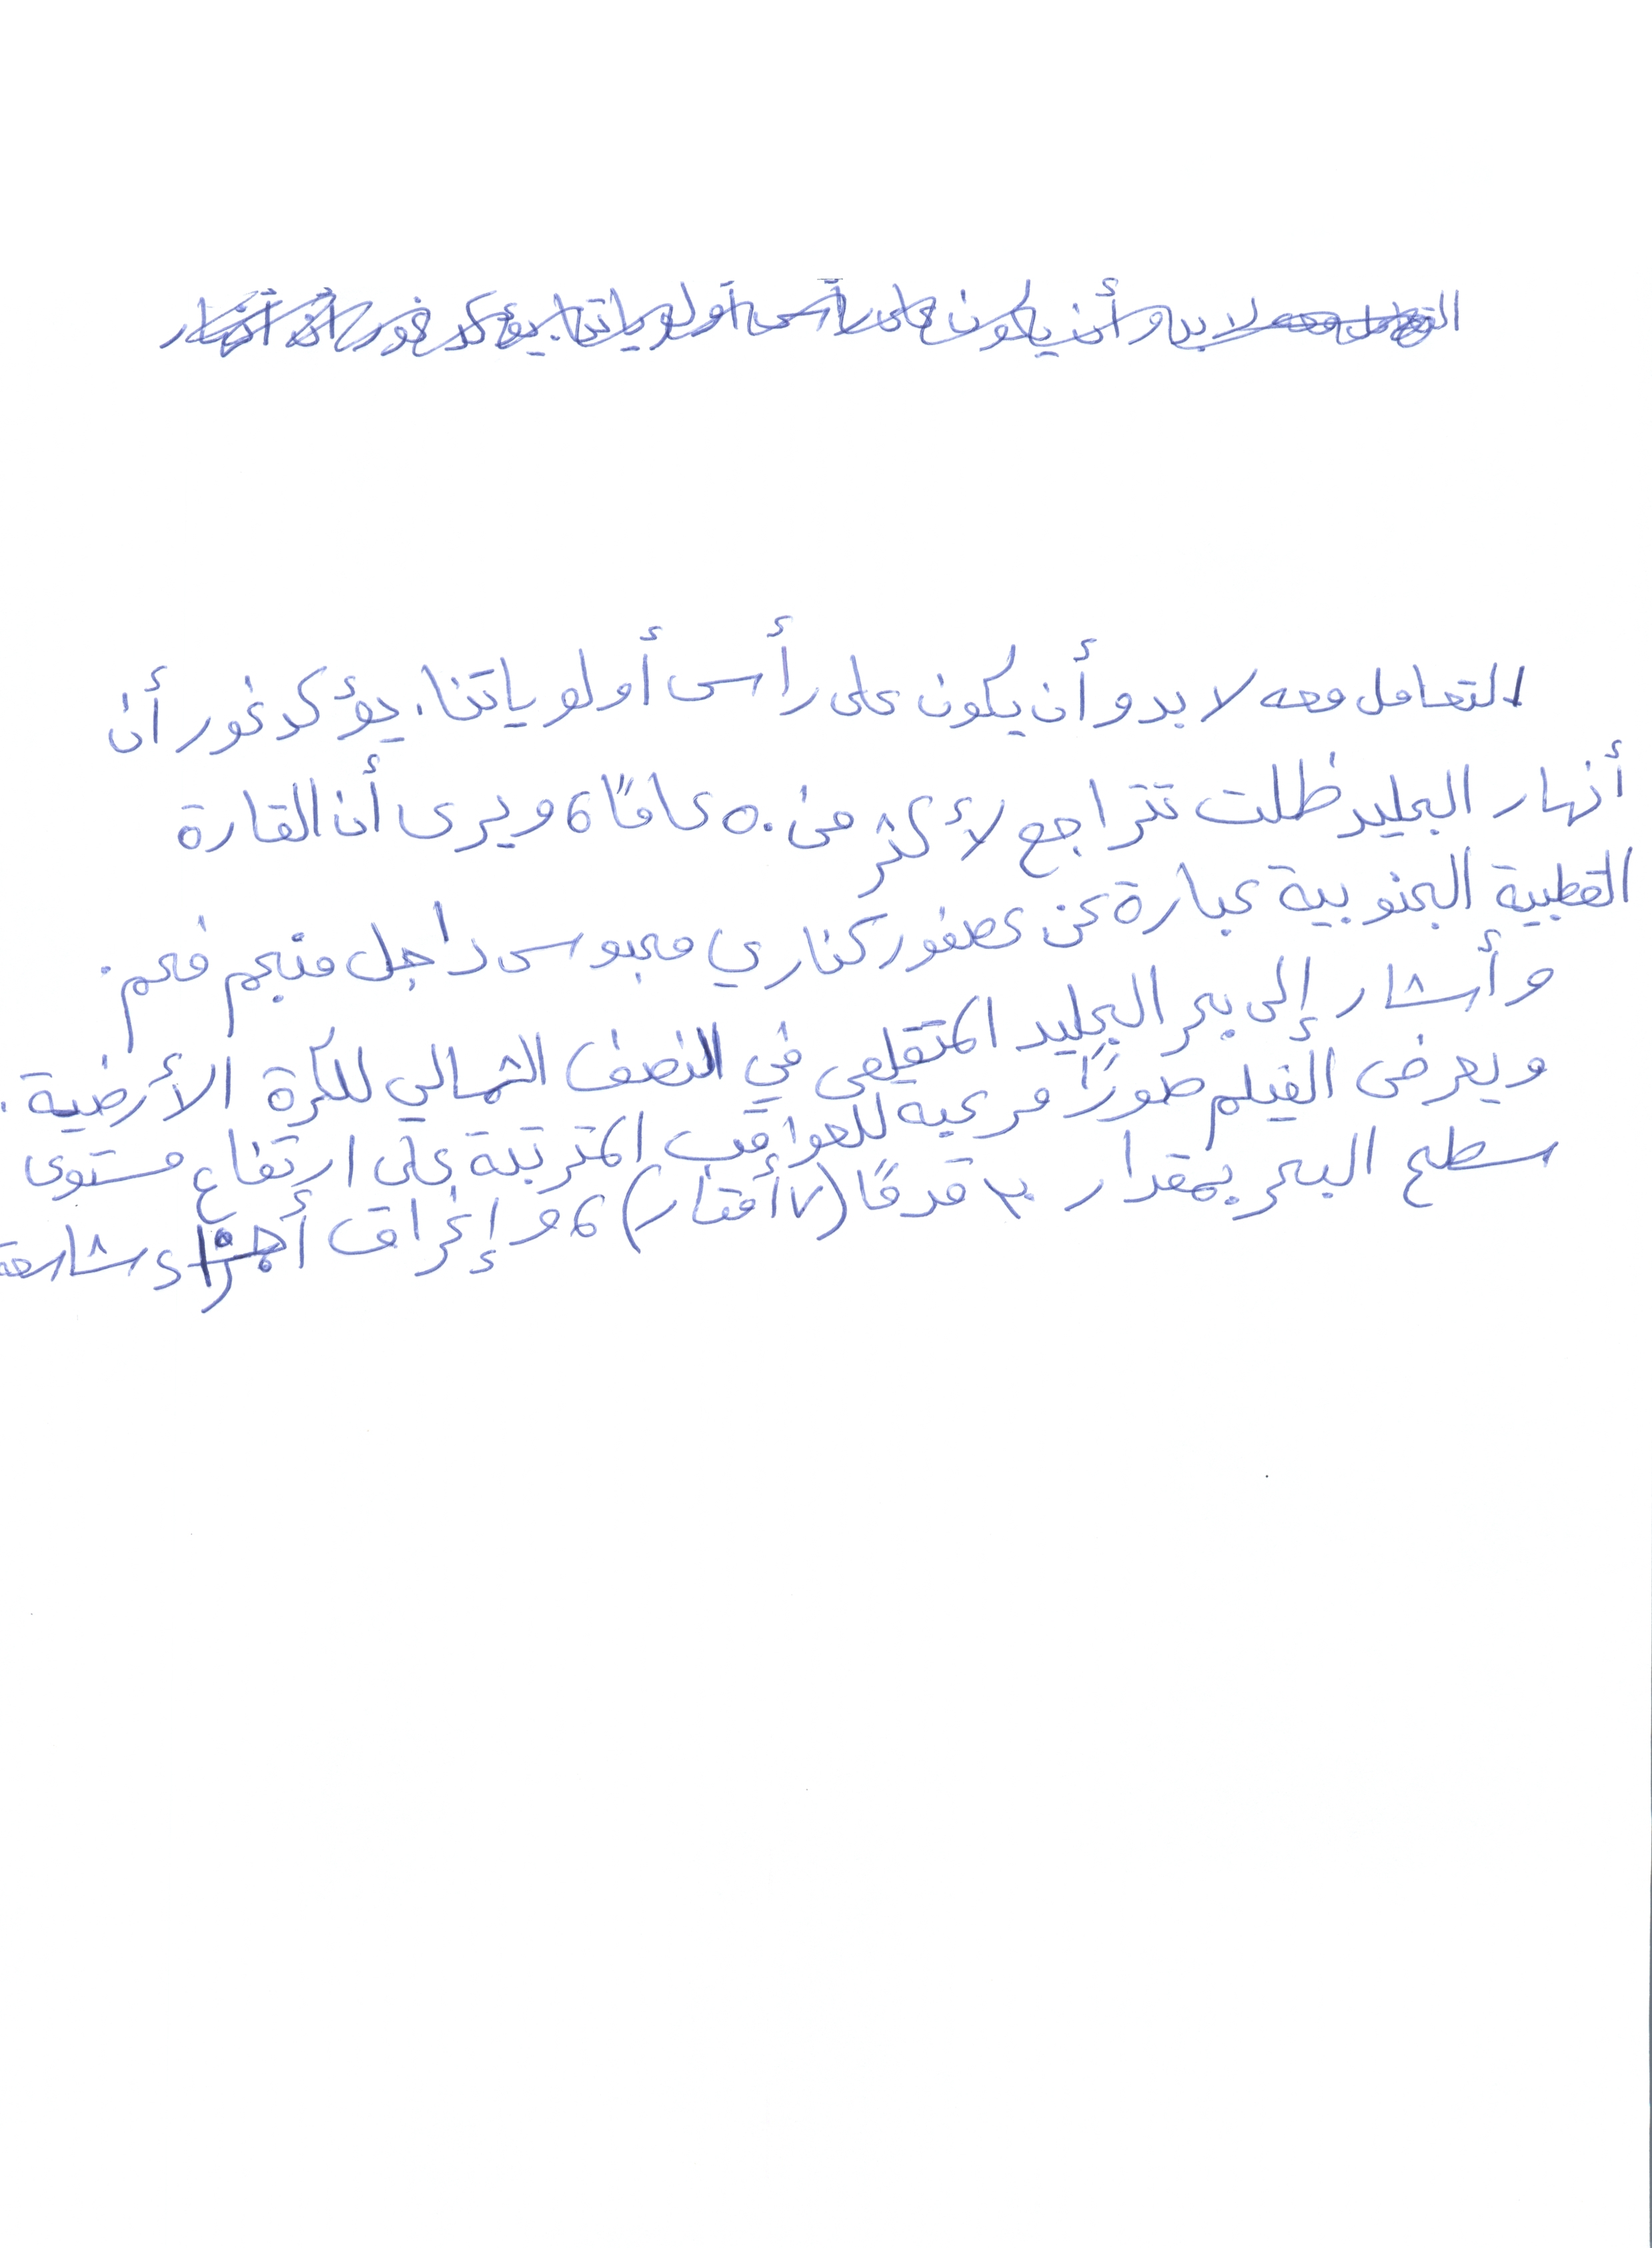 التعامل معه لا بد و أن يكون على رأس أولوياتنا. يؤكد غور أن أنهار
التعامل معه لا بد و أن يكون على رأس أولوياتنا. يؤكد غور أن
أنهار الجليد ظلت تتراجع لأكثر من ٥٠ عامًا، ويرى أن القارة
القطبية الجنوبية عبارة عن عصفور كناري محبوس داخل منجم فحم.
وأشار إلى بحر الجليد المتقلص في النصف الشمالي للكرة الأرضية.
ويعرض الفيلم صورًا مرعبه للعواقب المترتبة على ارتفاع مستوى
سطح البحر بمقدار ٢٠ قدمًا (٧ أمتار)، و إغراق أجزاء شاسعة